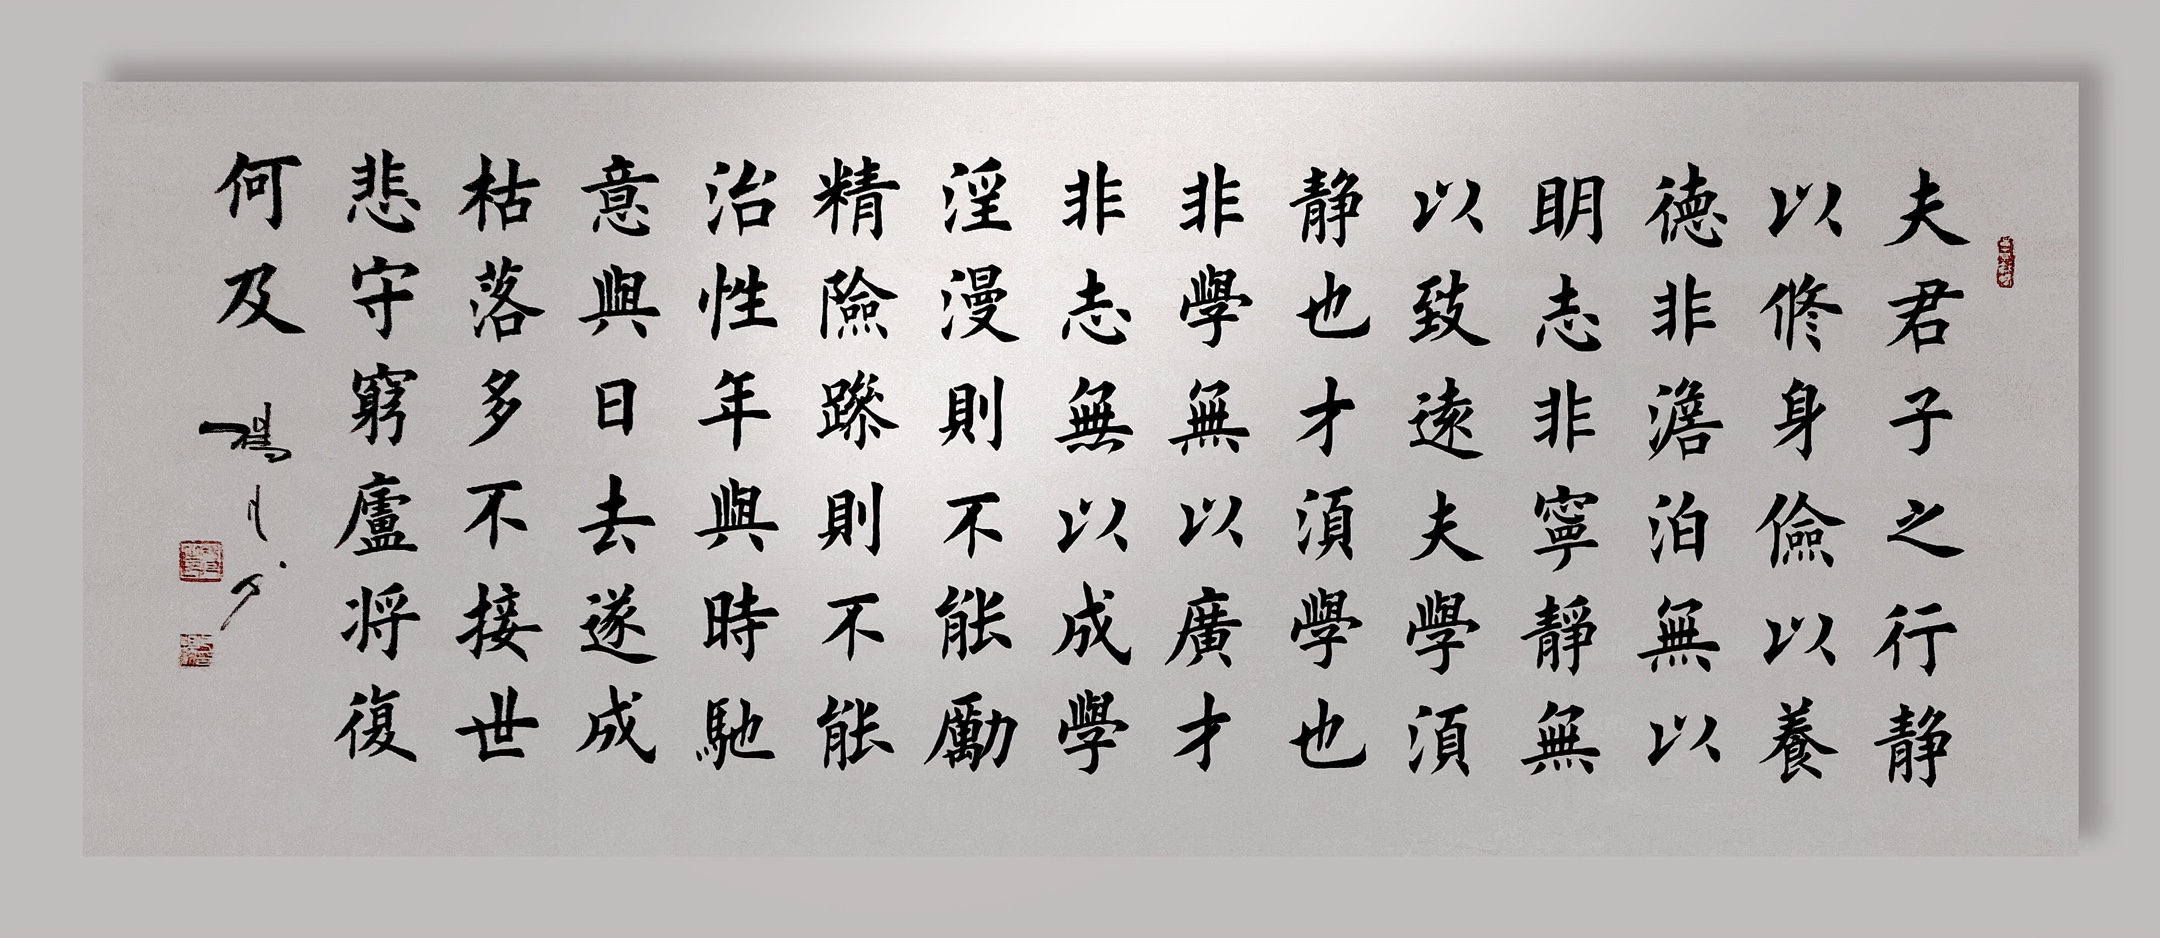 夫君子之行静
以修身儉以養
德非澹泊無以
明志非寧靜無
以致遠夫學須
静也才須學也
非學無以廣才
非志無以成學
淫漫則不能勵
精險躁則不能
治性年與時馳
意與日去遂成
枯落多不接世
悲守窮廬将復
何及